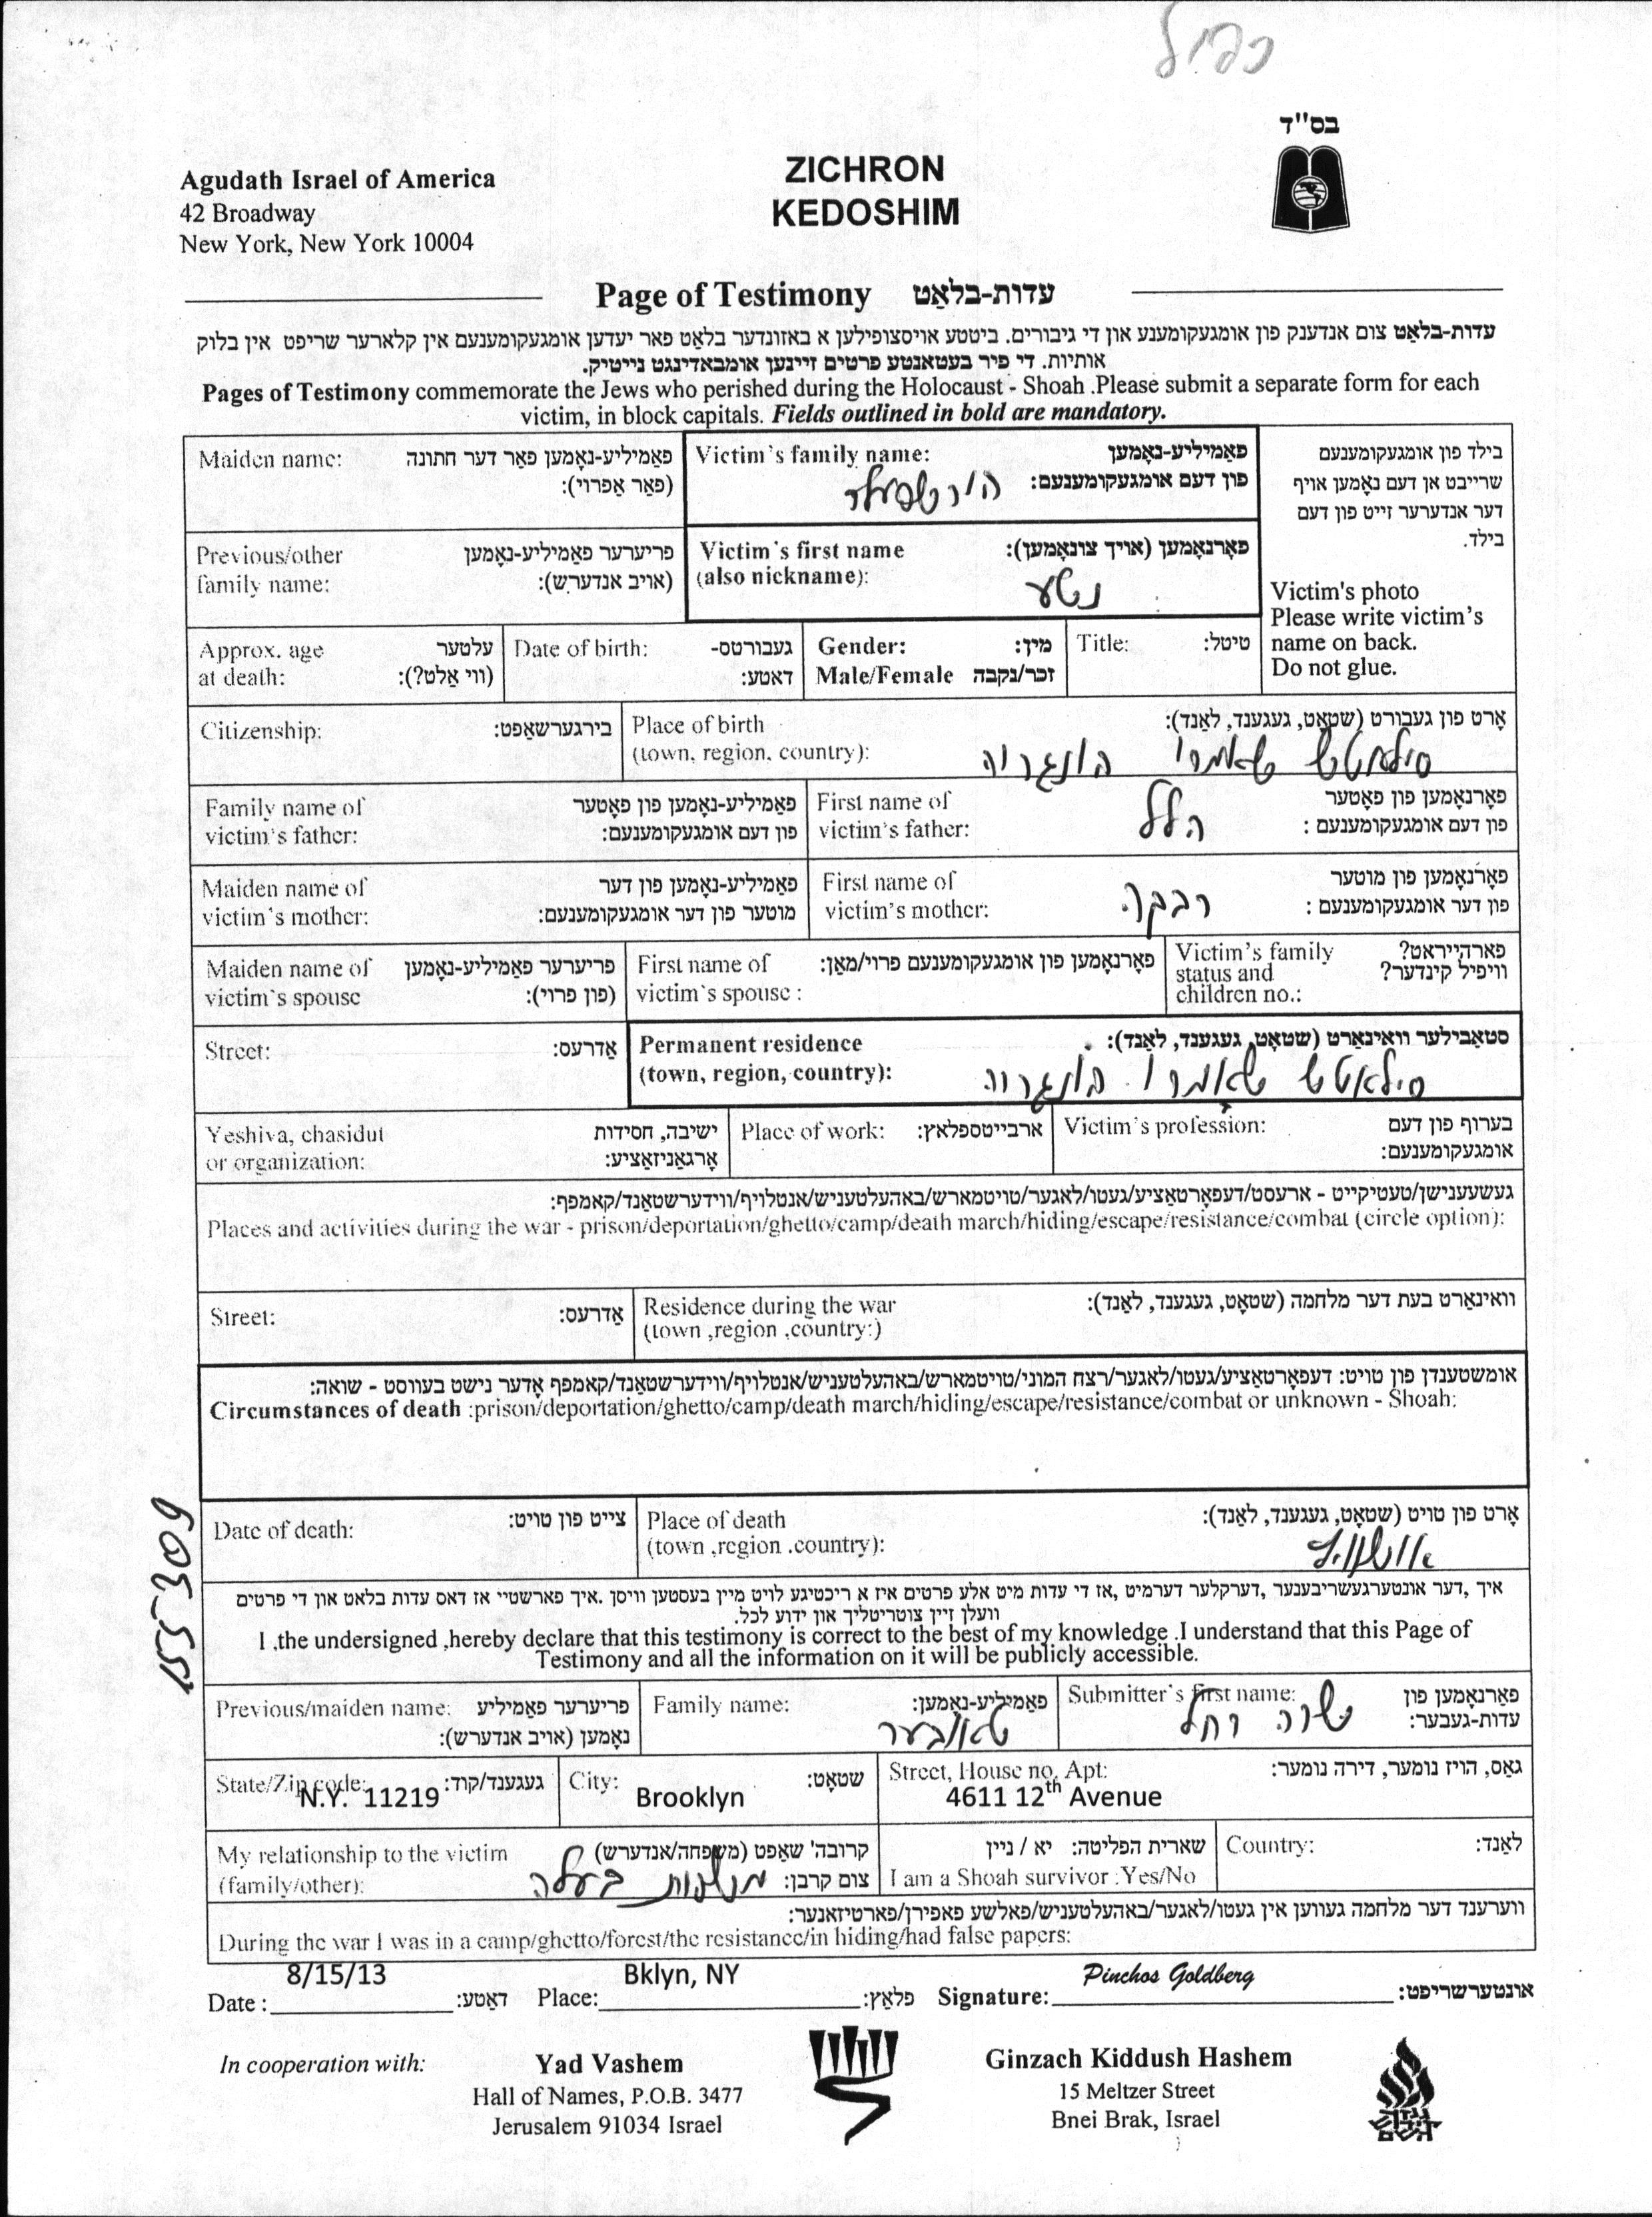 כפול
בס"ד
Agudath Israel of America
42 Broadway
New York, New York 10004
ZICHRON
KEDOSHIM
Page of Testimony עדות-בלאַט
עדות-בלאַט צום אנדענק פון אומגעקומענע און די גיבורים. ביטטע אויסצופילען א באזונדער בלאַט פאר יעדען אומגעקומענעם אין קלארער שריפט אין בלוק
אותיות. די פיר בעטאנטע פרטים זיינען אומבאדינגט נייטיק.
Pages of Testimony commemorate the Jews who perished during the Holocaust - Shoah .Please submit a separate form for each
victim, in block capitals. Fields outlined in bold are mandatory.
Maiden name: פאַמיליע-נאָמען פאַר דער חתונה
(פאַר אַפרוי):
Victim's family name: פאַמיליע-נאָמען
פון דעם אומגעקומענעם:
הירשפעלד
בילד פון אומגעקומענעם
שרייבט אן דעם נאָמען אויף
דער אנדערער זייט פון דעם
בילד.
Victim's photo
Please write victim's
name on back.
Do not glue.
Previous/other פריערער פאַמיליע-נאָמען
family name: (אויב אנדערש):
Victim's first name פאָרנאָמען (אויך צונאָמען):
(also nickname):
נטע
Approx. age עלטער
at death: (ווי אַלט?):
Date of birth: געבורטס-
דאטע:
Gender: מין:
Male/Female זכר/נקבה
Title: טיטל:
Citizenship: בירגערשאַפט:
Place of birth אָרט פון געבורט (שטאָט, געגענד, לאַנד):
(town, region, country):
הונגריה
Family name of פאַמיליע-נאָמען פון פאָטער
victim's father: פון דעם אומגעקומענעם:
First name of פאָרנאָמען פון פאָטער
victim's father: פון דעם אומגעקומענעם :
הלל
Maiden name of פאַמיליע-נאָמען פון דער
victim's mother: מוטער פון דער אומגעקומענעם:
First name of פאָרנאָמען פון מוטער
victim's mother: פון דער אומגעקומענעם :
רבקה
Maiden name of פריערער פאַמיליע-נאָמען
victim's spouse (פון פרוי):
First name of פאָרנאָמען פון אומגעקומענעם פרוי/מאַן:
victim's spouse :
Victim's family פארהייראט?
status and וויפיל קינדער?
children no.:
Street: אַדרעס:
Permanent residence סטאַבילער וואינאָרט (שטאָט, געגענד, לאַנד):
(town, region, country):
הונגריה
Yeshiva, chasidut ישיבה, חסידות
or organization: אָרגאַניזאַציע:
Place of work: ארבייטספלאץ:
Victim's profession: בערוף פון דעם
אומגעקומענעם:
געשעענישן/טעטיקייט - ארעסט/דעפאָרטאַציע/געטו/לאגער/טויטמארש/באהעלטעניש/אנטלויף/ווידערשטאַנד/קאמפף:
Places and activities during the war - prison/deportation/ghetto/camp/death march/hiding/escape/resistance/combat (circle option):
Street: אַדרעס:
Residence during the war וואינאָרט בעת דער מלחמה (שטאָט, געגענד, לאַנד):
(town ,region ,country:)
אומשטענדן פון טויט: דעפאָרטאַציע/געטו/לאגער/רצח המוני/טויטמארש/באהעלטעניש/אנטלויף/ווידערשטאַנד/קאמפף אָדער נישט בעווסט - שואה:
Circumstances of death :prison/deportation/ghetto/camp/death march/hiding/escape/resistance/combat or unknown - Shoah:
Date of death: צייט פון טויט:
Place of death אָרט פון טויט (שטאָט, געגענד, לאַנד):
(town ,region .country):
איך ,דער אונטערגעשריבענער ,דערקלער דערמיט ,אז די עדות מיט אלע פרטים איז א ריכטיגע לויט מיין בעסטען וויסן .איך פארשטיי אז דאס עדות בלאט און די פרטים
וועלן זיין צוטריטליך און ידוע לכל.
I ,the undersigned ,hereby declare that this testimony is correct to the best of my knowledge .I understand that this Page of
Testimony and all the information on it will be publicly accessible.
Previous/maiden name: פריערער פאַמיליע
נאָמען (אויב אנדערש):
Family name: פאַמיליע-נאָמען:
טאובער
Submitter's first name: פאָרנאָמען פון
עדות-געבער:
שרה רחל
State/Zip code: געגענד/קוד:
N.Y. 11219
City: שטאָט:
Brooklyn
Street, House no, Apt: גאַס, הויז נומער, דירה נומער:
4611 12th Avenue
My relationship to the victim קרובה' שאַפט (משפחה/אנדערש)
(family/other): צום קרבן:
משפחת בעלה
שארית הפליטה: יא / ניין
I am a Shoah survivor :Yes/No
Country: לאַנד:
ווערענד דער מלחמה געווען אין געטו/לאגער/באהעלטעניש/פאלשע פאפירן/פארטיזאנער:
During the war I was in a camp/ghetto/forest/the resistance/in hiding/had false papers:
Date : 8/15/13 דאַטע: Place: Bklyn, NY פלאַץ: Signature: Pinchos Goldberg אונטערשריפט:
In cooperation with:
Yad Vashem
Hall of Names, P.O.B. 3477
Jerusalem 91034 Israel
Ginzach Kiddush Hashem
15 Meltzer Street
Bnei Brak, Israel